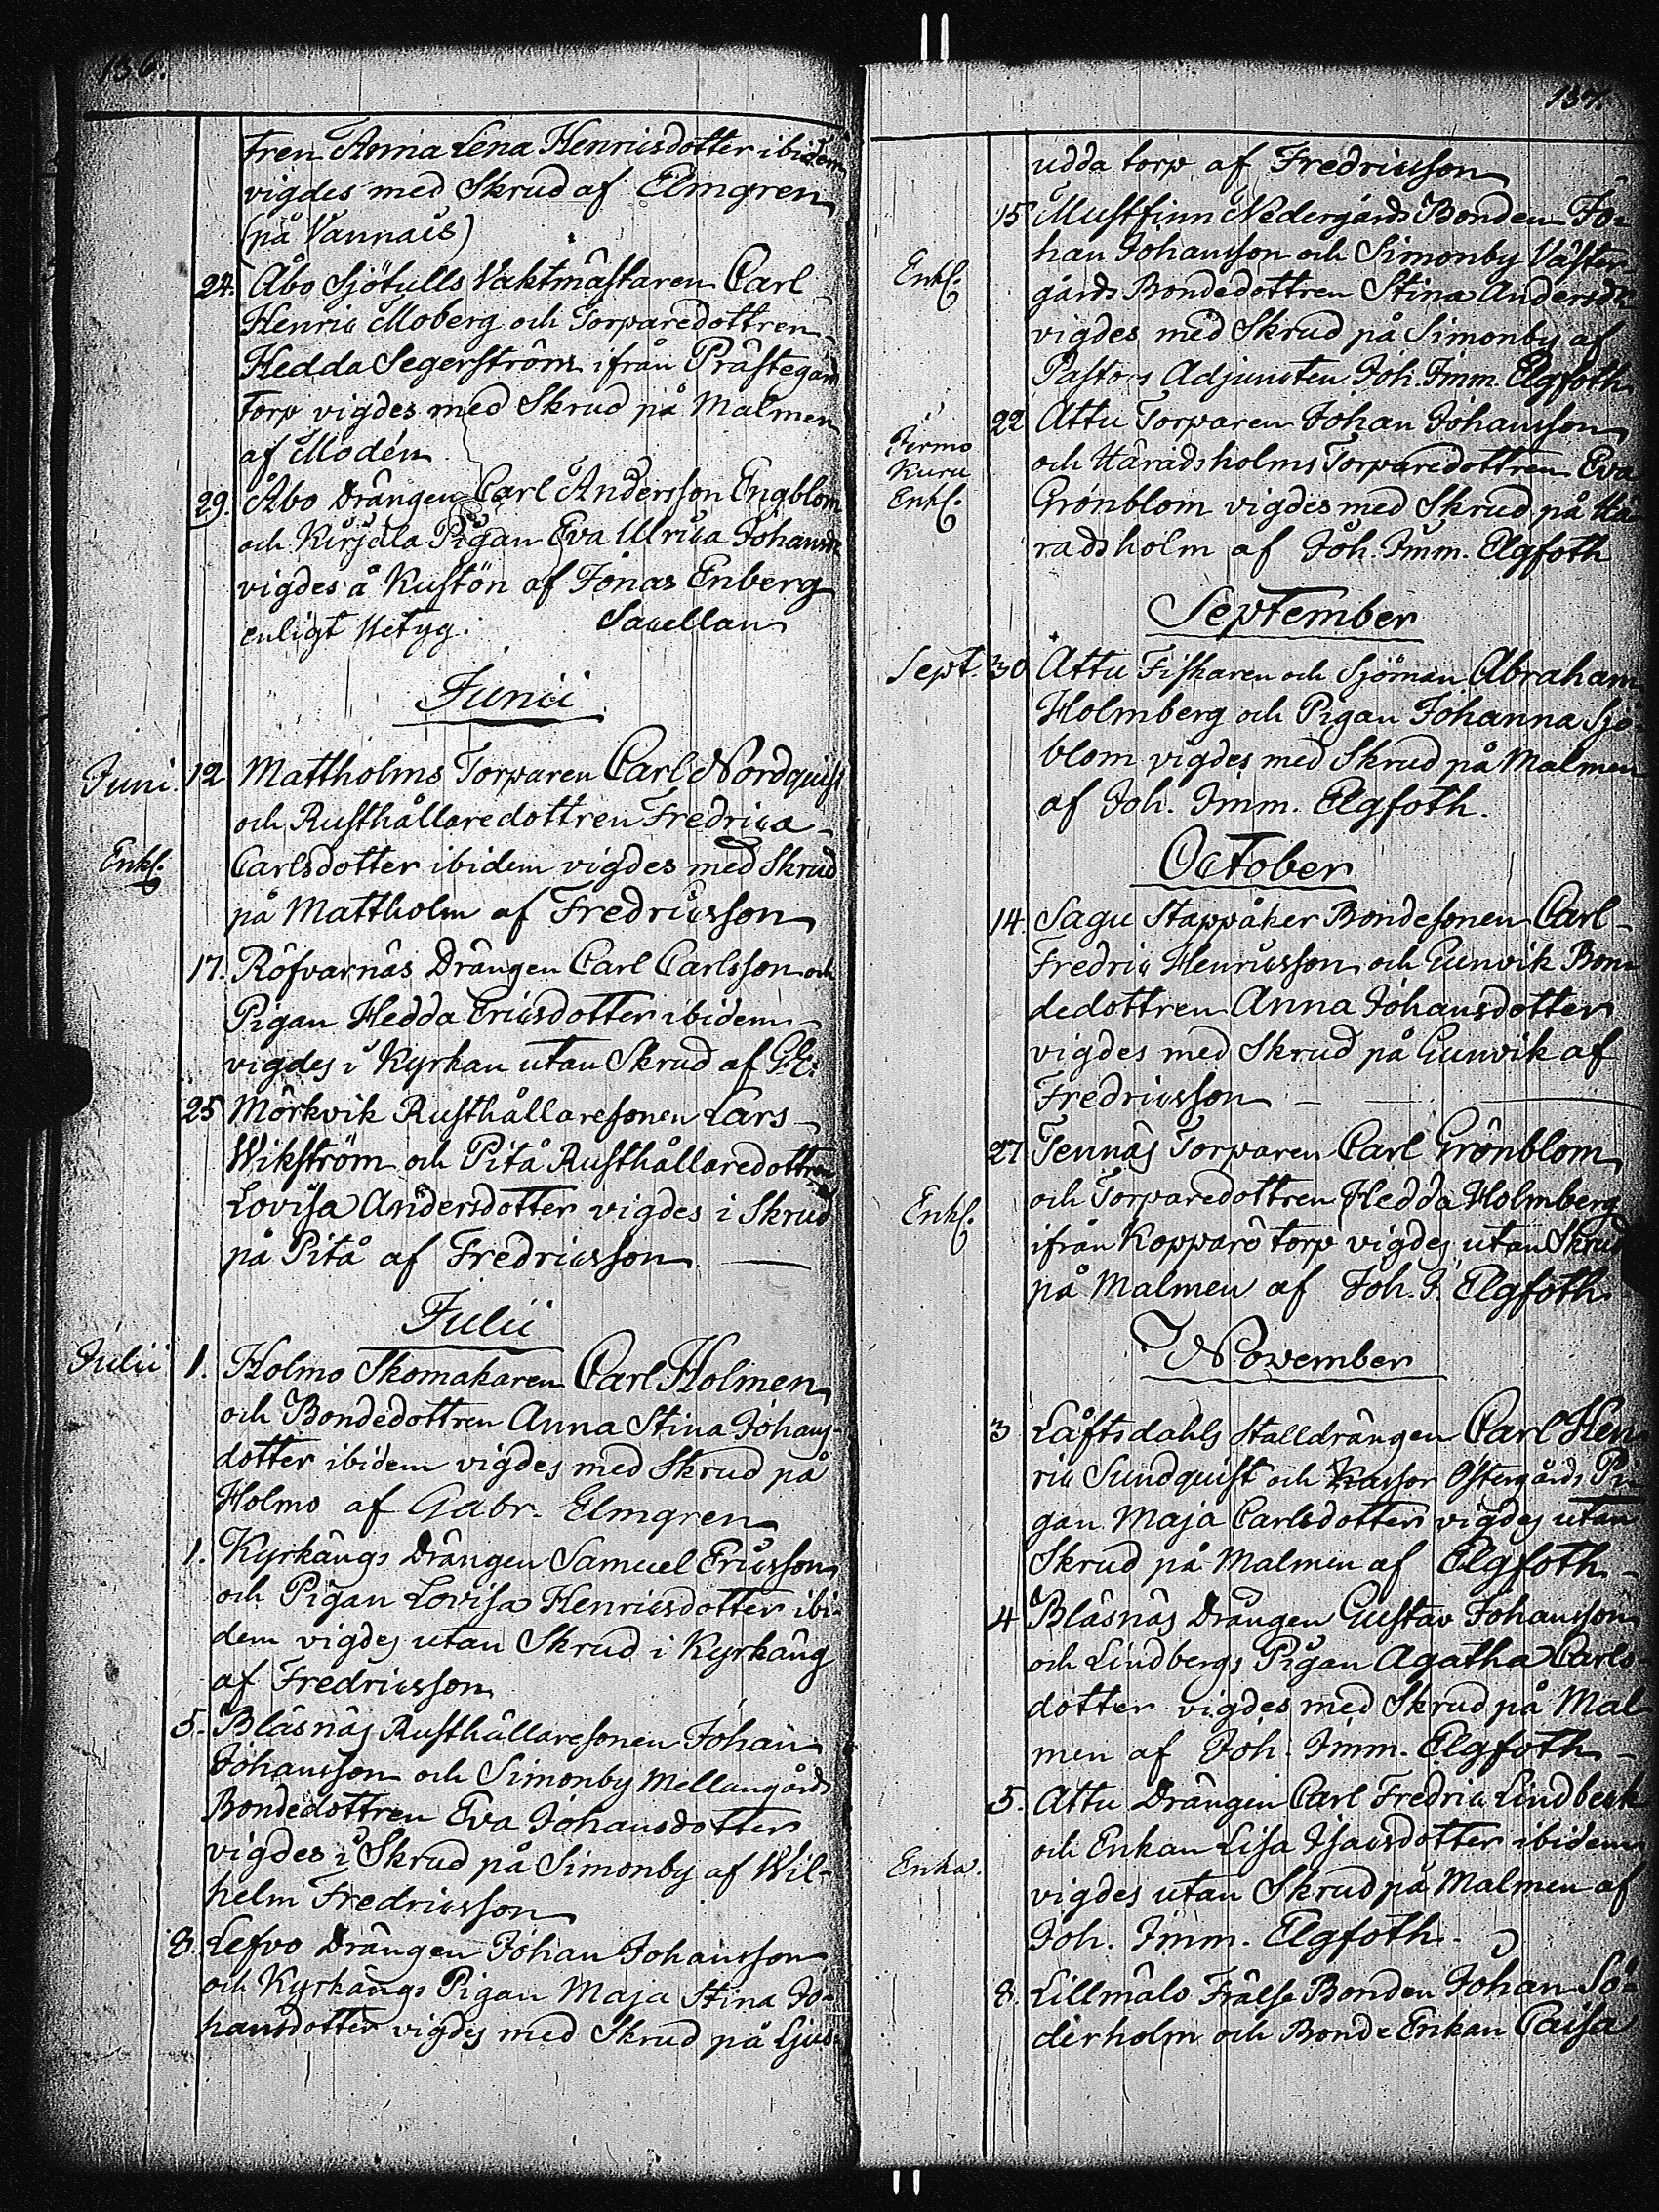 136.
tren Anna Lena Henricsdotter ibidem
vigdes med Skrud af Elmgren
(på Vannais)
24. Åbo Sjötulls Vaktmästaren Carl
Henric Moberg och Torparedottren
Hedda Segerström ifrån Prästegård
Torp vigdes med Skrud på Malmen
af Modén
29. Åbo Drängen Carl Andersson Engblom
och Kirjala Pigan Eva Ulrica Johansdr
vigdes å Kustön af Jonas Enberg
enligt betyg. Sacellan
Junii
Juni. 12 Mattholms Torparen Carl Nordquist
och Rusthållaredottren Fredrica
Enkl. Carlsdotter ibidem vigdes med Skrud
på Mattholm af Fredricsson
17. Röfvarnäs Drängen Carl Carlsson och
Pigan Hedda Ericsdotter ibidem
vigdes i Kyrkan utan Skrud af G. E.
25 Mörkvik Rusthållaresonen Lars
Wikström och Pitå Rusthållaredottren
Lovisa Andersdotter vigdes i Skrud
på Pitå af Fredricsson
Julii
Julii 1. Holmo Skomakaren Carl Holmen
och Bondedottren Anna Stina Johans-
dotter ibidem vigdes med Skrud på
Holmo af Gabr. Elmgren
1. Kyrkängs Drängen Samuel Ericsson
och Pigan Lovisa Henricsdotter ibi-
dem vigdes utan Skrud i Kyrkäng
af Fredricsson
5. Bläsnäs Rusthållaresonen Johan
Johansson och Simonby Mellangårds
Bondedottren Eva Johansdotter
vigdes i Skrud på Simonby af Wil-
helm Fredricsson
8. Lefvo Drängen Johan Johansson
och Kyrkängs Pigan Maja Stina Jo-
hansdotter vigdes med Skrud på Ljus-
137.
udda torp af Fredricsson
15 Mustfinn Nedergårds Bonden Jo-
Enkl. han Johansson och Simonby Väster-
gårds Bondedottren Stina Andersdr
vigdes med Skrud på Simonby af
Pastors Adjuncten Joh. Imm. Elgfoth
22 Attu Torparen Johan Johansson
Jermo
Kuru och Häradsholms Torparedottren Eva
Enkl. Grönblom vigdes med Skrud på Hä
radsholm af Joh. Imm. Elgfoth
September
Sept. 30 Attu Fiskaren och Sjöman Abraham
Holmberg och Pigan Johanna Sjö-
blom vigdes med Skrud på Malmen
af Joh. Imm. Elgfoth.
October
14. Sagu Stappåker Bondesonen Carl
Fredric Henricsson och Gunvik Bon-
dedottren Anna Johansdotter
vigdes med Skrud på Gunvik af
Fredricsson
27 Tennäs Torparen Carl Grönblom
Enkl. och Torparedottren Hedda Holmberg
ifrån Kopparö torp vigdes utan Skrud
på Malmen af Joh. I. Elgfoth.
November
3 Låftsdahls Stalldrängen Carl Hen
ric Sundquist och Kassor Östergårds Pi-
gan Maja Carlsdotter vigdes utan
Skrud på Malmen af Elgfoth
4 Bläsnäs Drängen Gustav Johansson
och Lindbergs Pigan Agatha Carls-
dotter vigdes med Skrud på Mal
men af Joh. Imm. Elgfoth
5. Attu Drängen Carl Fredric Lindbeck
Enka. och Enkan Lisa Isacsdotter ibidem
vigdes utan Skrud på Malmen af
Joh. Imm. Elgfoth.
8. Lillmälo Frälse Bonden Johan Sö-
derholm och Bonde Enkan Caisa